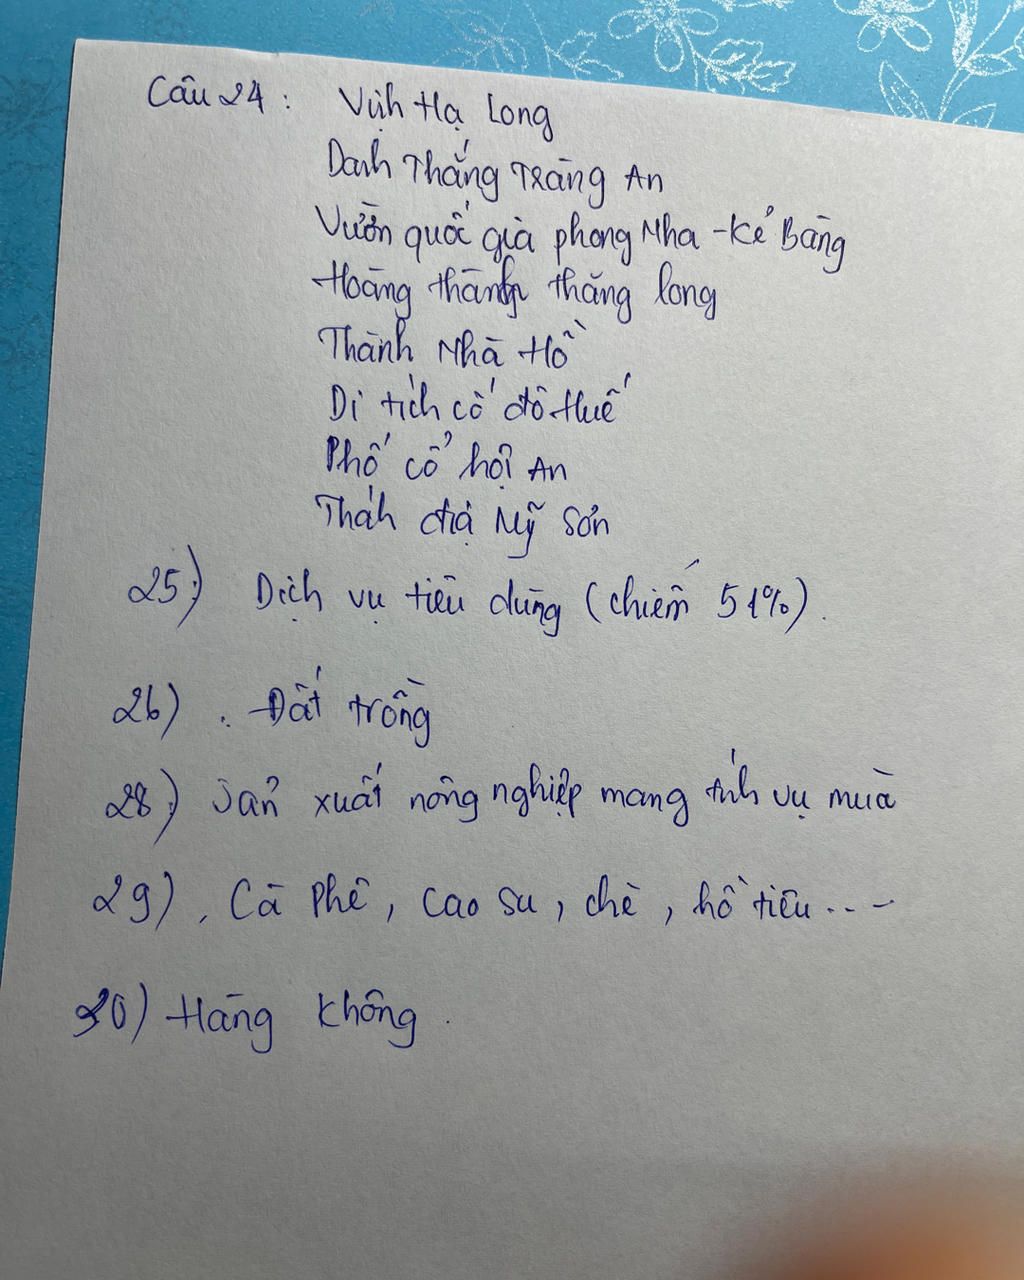 Câu 24 : Vịnh Hạ Long
Danh Thắng Tràng An
Vườn quốc gia phong Nha - Kẻ Bàng
Hoàng thành thăng long
Thành Nhà Hồ
Di tích cố đô Huế
Phố cổ hội An
Thánh địa Mỹ Sơn
25) Dịch vụ tiêu dùng (chiếm 51%).
26) . Đất trồng
28) sản xuất nông nghiệp mang tính vụ mùa
29) . Cà Phê, cao su, chè, hồ tiêu...-
30) Hàng không.